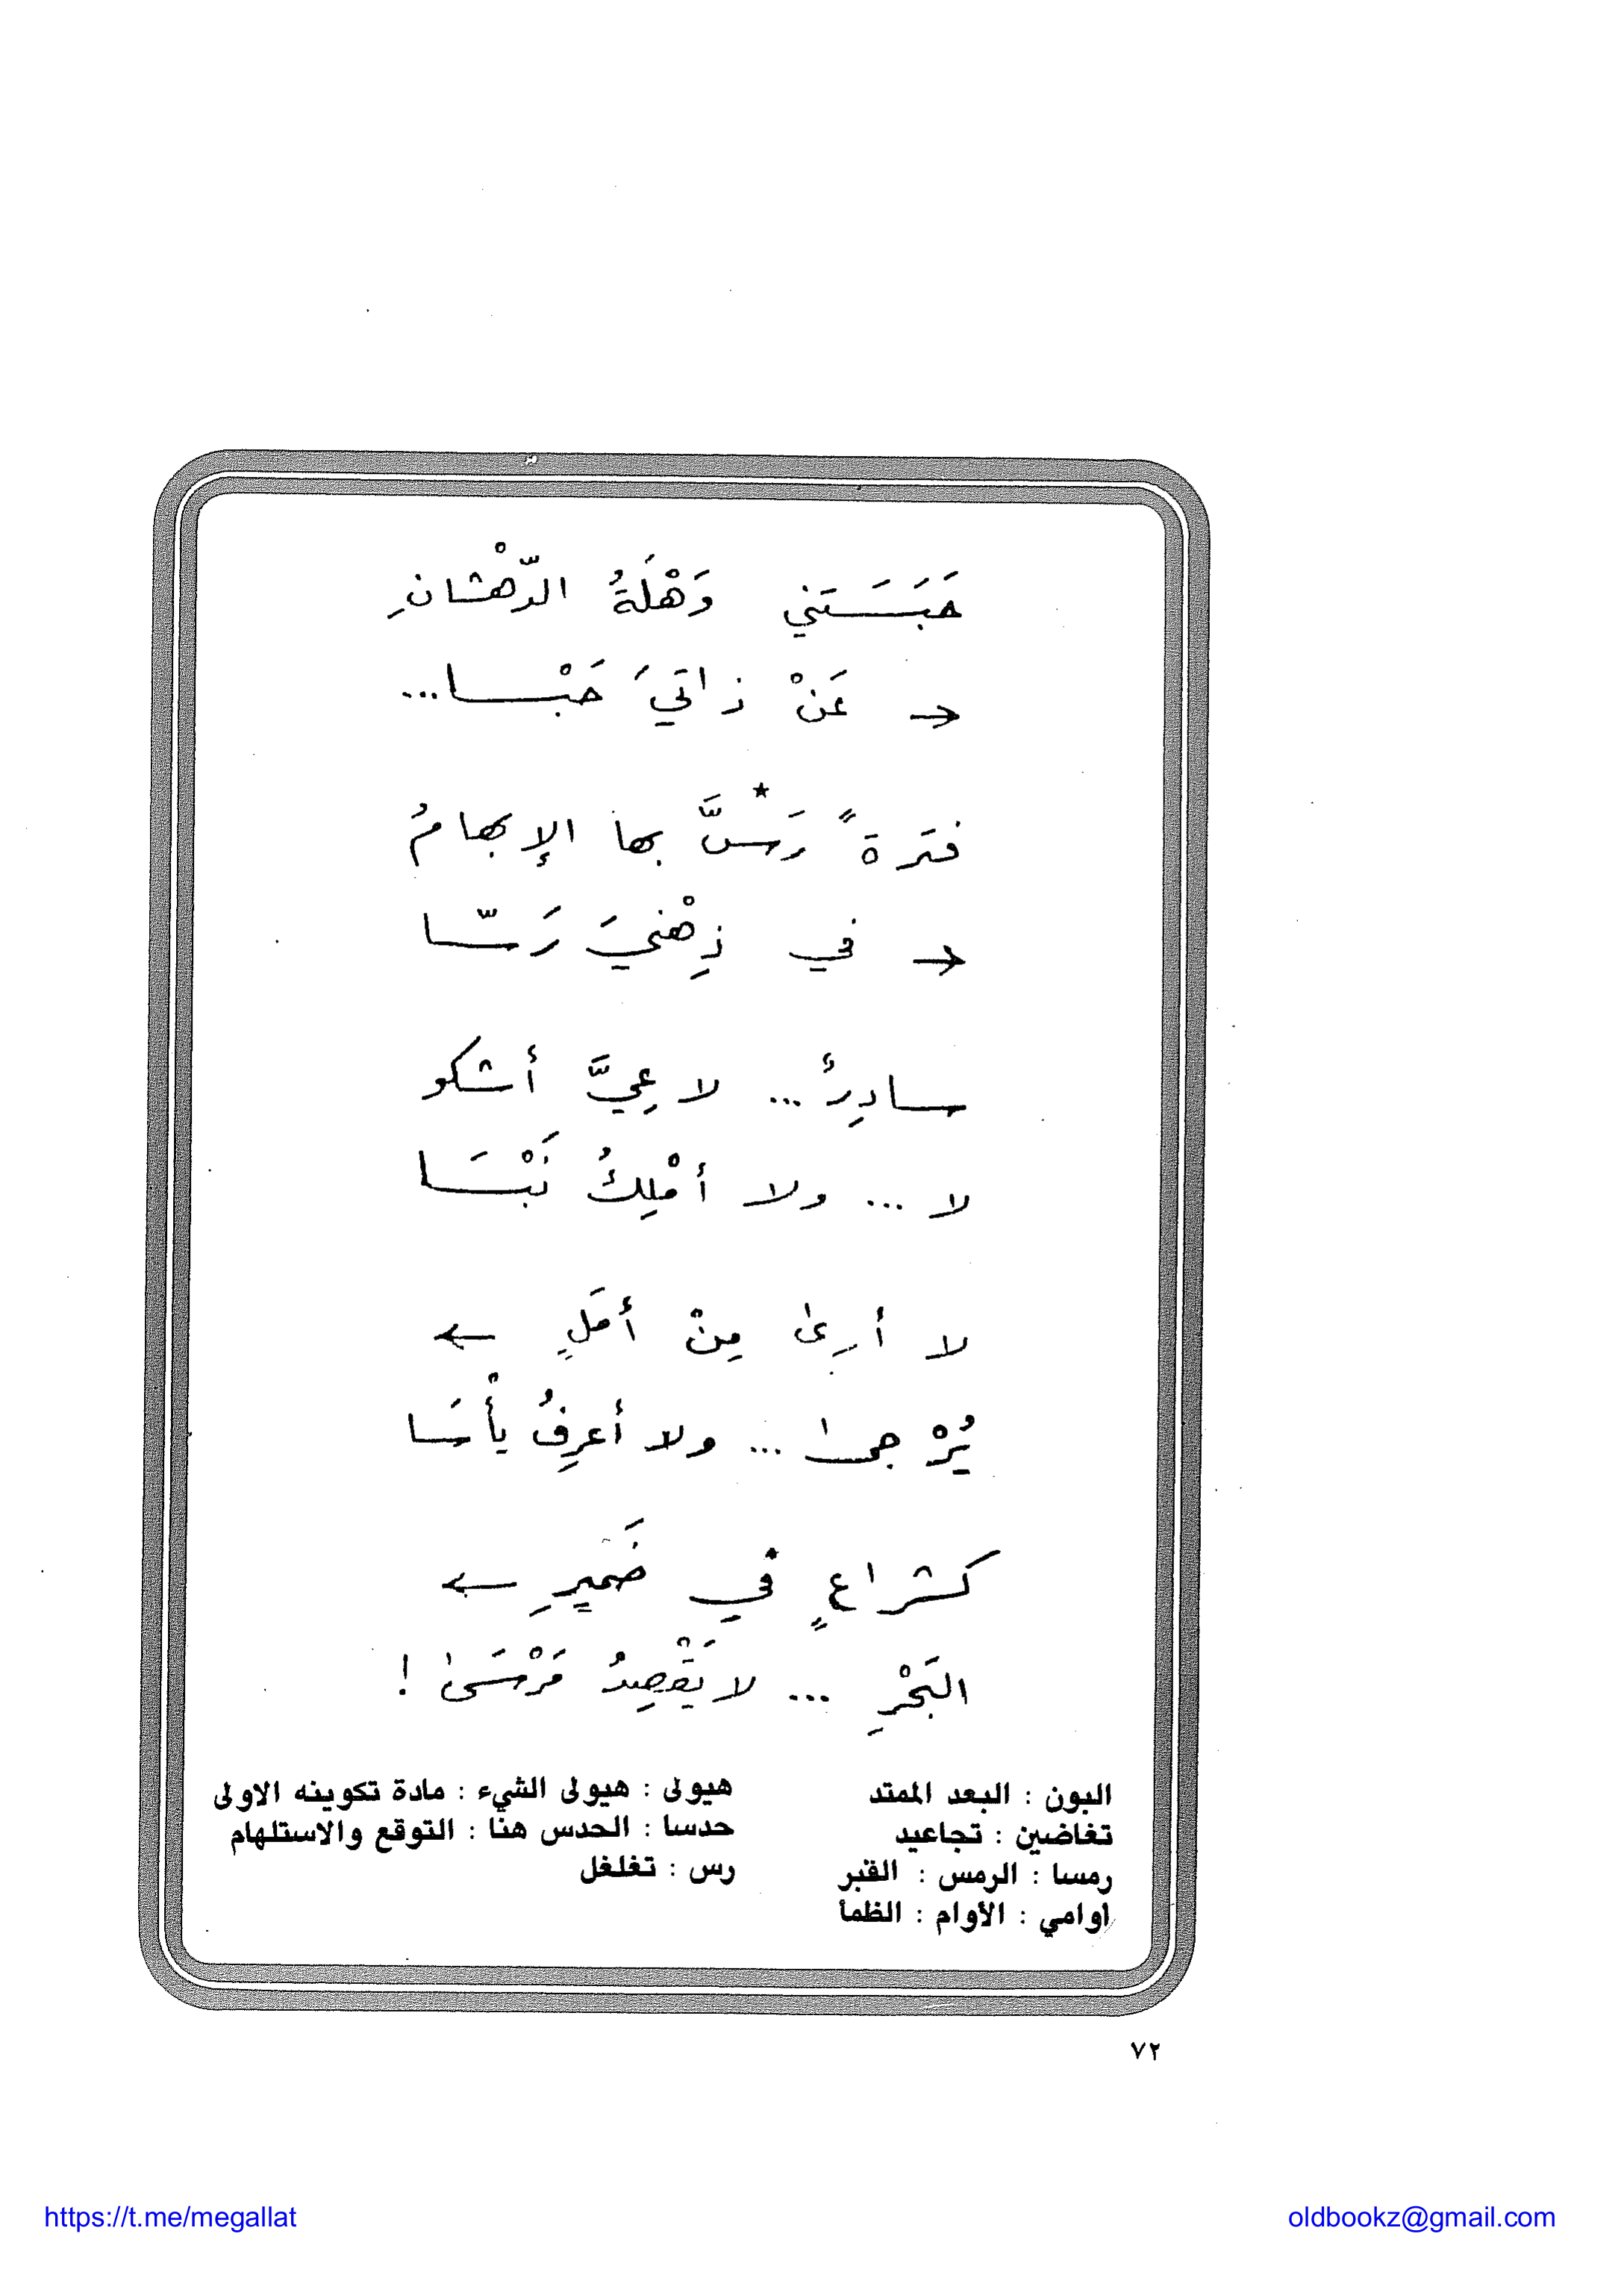 حَبَسَتني وَهْلَةُ الدّهْشانِ
← عَنْ ذاتيَ حَبْسا...
فترةً رَسَّ* بها الإبهامُ
← في ذِهْنيَ رَسّا
سادِرٌ... لا عِيَّ أشكو
لا... ولا أمْلِكُ نَبْسَا
لا أرىٰ مِنْ أمَلٍ ←
يُرْجىٰ... ولا أعرِفُ يأْسَا
كشراعٍ في ضَميرِ ←
البَحْرِ... لا يَقْصِدُ مَرْسَىٰ !
البون : البعد الممتد
تغاضين : تجاعيد
رمسا : الرمس : القبر
أوامي : الأوام : الظمأ
هيولى : هيولى الشيء : مادة تكوينه الاولى
حدسا : الحدس هنا : التوقع والاستلهام
رس : تغلغل
٧٢
https://t.me/megallat
oldbookz@gmail.com